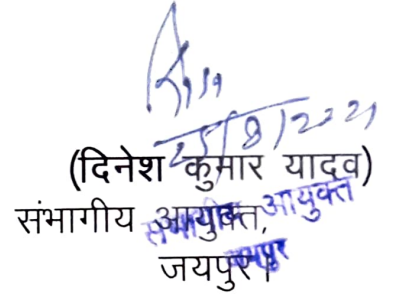 25/8/2021
(दिनेश कुमार यादव)
संभागीय आयुक्त,
संभागीय आयुक्त
जयपुर।
जयपुर